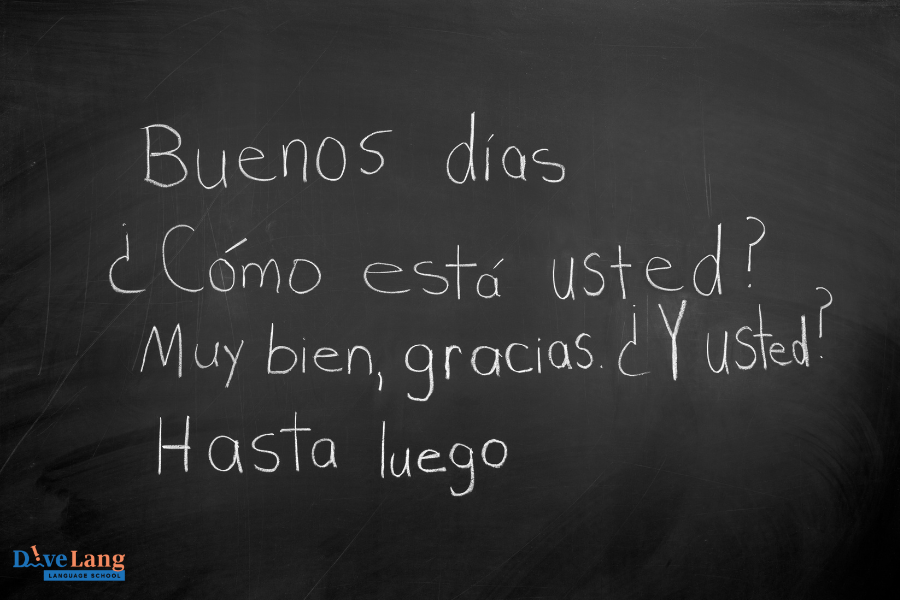 Buenos días
¿Cómo está usted?
Muy bien, gracias. ¿Y usted?
Hasta luego
DiveLang
LANGUAGE SCHOOL